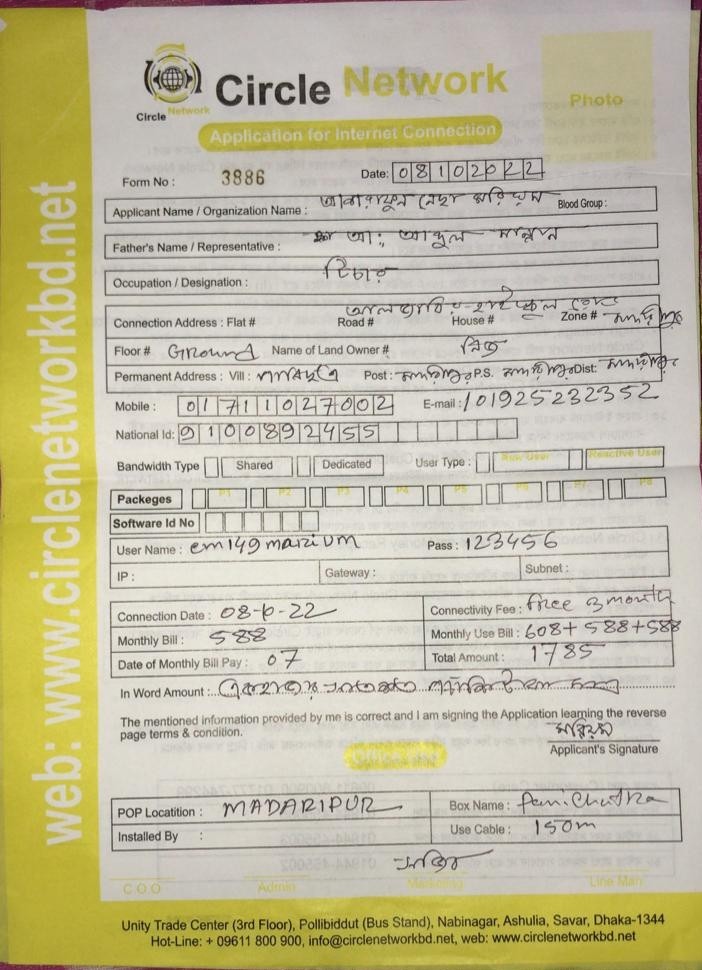 Circle Network
Circle Network
Photo
Application for Internet Connection
Form No : 3886 Date: 08102022
Applicant Name / Organization Name : মরিয়ম Blood Group :
Father's Name / Representative : আ: মান্নান
Occupation / Designation : টিচার
Connection Address : Flat # Road # House # Zone #
Floor # Ground Name of Land Owner # নিজ
Permanent Address : Vill : Post : মাদারীপুর P.S. মাদারীপুর Dist: মাদারীপুর
Mobile : 01711027002 E-mail : 01925232352
National Id: 9100892455
Bandwidth Type Shared Dedicated User Type : Raw User Reactive User
Packeges P1 P2 P3 P4 P5 P6 P7 P8
Software Id No
User Name : em149marium Pass : 123456
IP : Gateway : Subnet :
Connection Date : 08-10-22 Connectivity Fee : free 3 month
Monthly Bill : 588 Monthly Use Bill : 608+588+588
Date of Monthly Bill Pay : 07 Total Amount : 1785
In Word Amount : একহাজার সাতশত পঁচাশি টাকা মাত্র
The mentioned information provided by me is correct and I am signing the Application learning the reverse
page terms & condition.
মরিয়ম
Applicant's Signature
POP Locatition : MADARIPUR Box Name :
Installed By : Use Cable : 150m
C.O.O Admin Marketing Line Man
Unity Trade Center (3rd Floor), Pollibiddut (Bus Stand), Nabinagar, Ashulia, Savar, Dhaka-1344
Hot-Line: + 09611 800 900, info@circlenetworkbd.net, web: www.circlenetworkbd.net
web: www.circlenetworkbd.net